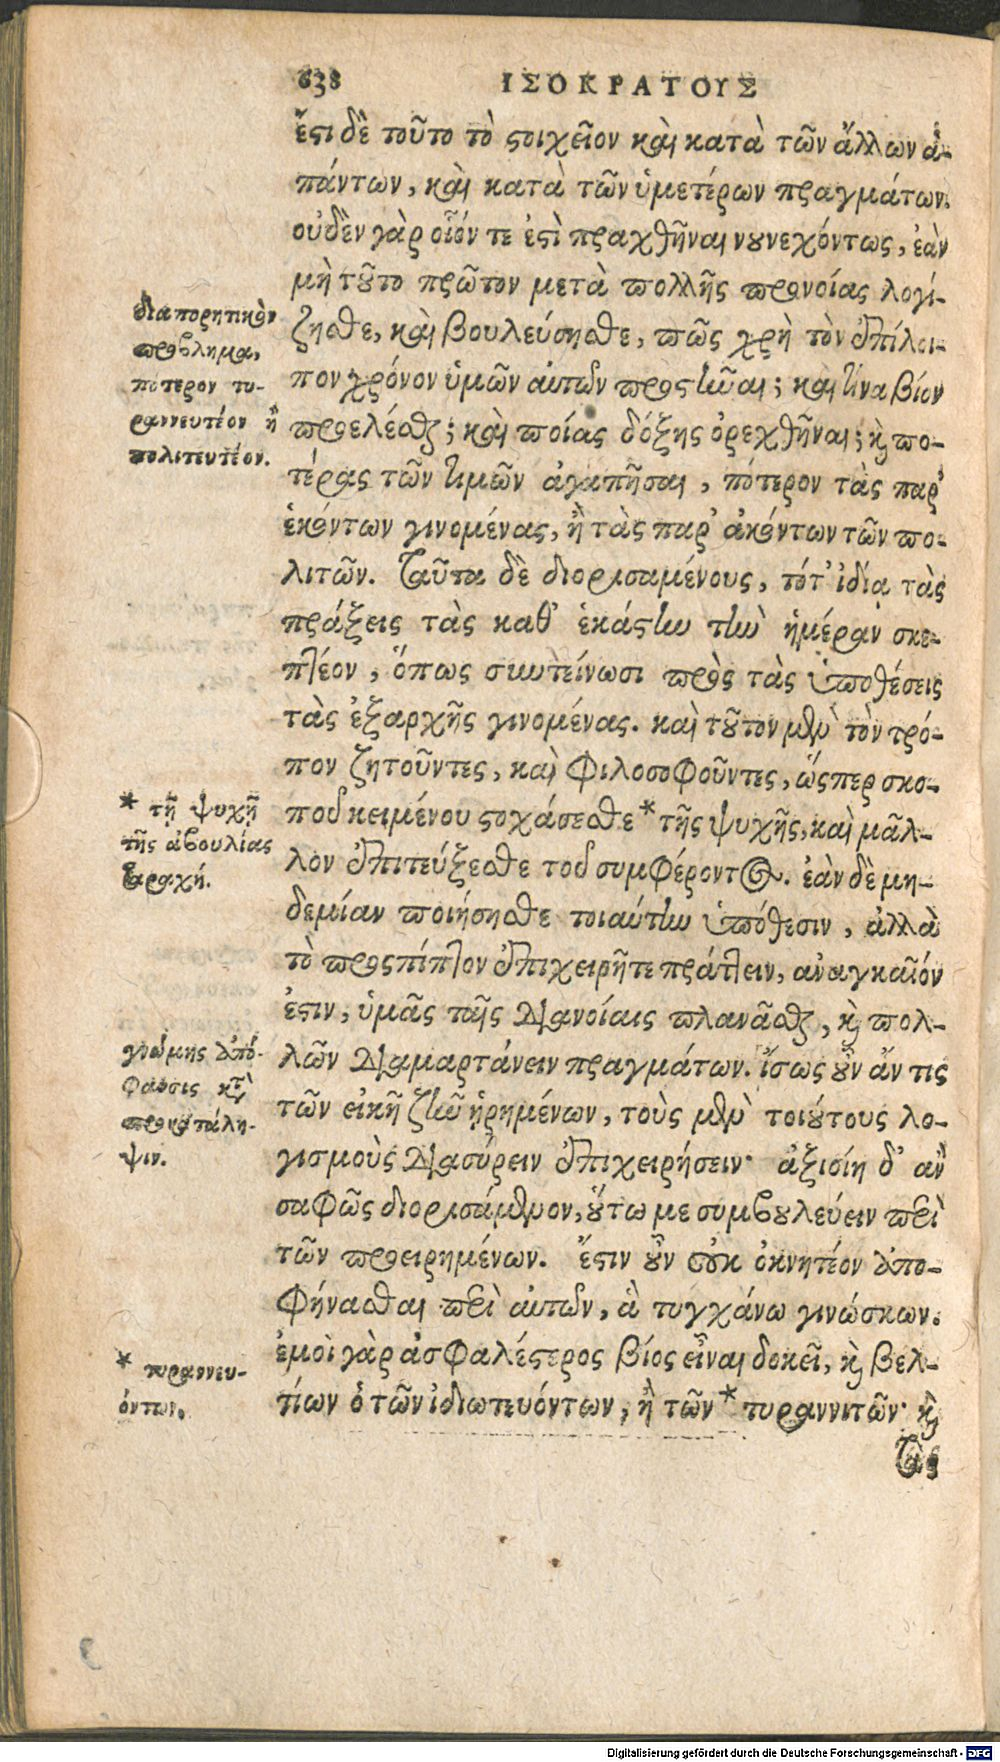 638 ΙΣΟΚΡΑΤΟΥΣ
ἔστι δὲ τοῦτο τὸ στοιχεῖον καὶ κατὰ τῶν ἄλλων ἁ-
πάντων, καὶ κατὰ τῶν ὑμετέρων πραγμάτων.
οὐδὲν γὰρ οἷόν τε ἐστὶ πραχθῆναι νουνεχόντως, ἐὰν
μὴ τοῦτο πρῶτον μετὰ πολλῆς προνοίας λογί-
ζησθε, καὶ βουλεύσησθε, πῶς χρὴ τὸν ἐπίλοι-
πον χρόνον ὑμῶν αὐτῶν προστῆναι; καὶ τίνα βίον
προελέσθαι; καὶ ποίας δόξης ὀρεχθῆναι; καὶ πο-
τέρας τῶν τιμῶν ἀγαπῆσαι, πότερον τὰς παρ'
ἑκόντων γινομένας, ἢ τὰς παρ' ἀκόντων τῶν πο-
λιτῶν. Ταῦτα δὲ διορισαμένους, τότ' ἰδίᾳ τὰς
πράξεις τὰς καθ' ἑκάστην τὴν ἡμέραν σκε-
πτέον, ὅπως συντείνωσι πρὸς τὰς ὑποθέσεις
τὰς ἐξαρχῆς γινομένας. καὶ τοῦτον μὲν τὸν τρό-
πον ζητοῦντες, καὶ φιλοσοφοῦντες, ὥσπερ σκο-
ποῦ κειμένου στοχάσεσθε * τῆς ψυχῆς, καὶ μᾶλ-
λον ἐπιτεύξεσθε τοῦ συμφέροντος. ἐὰν δὲ μη-
δεμίαν ποιήσησθε τοιαύτην ὑπόθεσιν, ἀλλὰ
τὸ προσπίπτον ἐπιχειρῆτε πράττειν, ἀναγκαῖόν
ἐστιν, ὑμᾶς ταῖς διανοίαις πλανᾶσθαι, καὶ πολ-
λῶν διαμαρτάνειν πραγμάτων. ἴσως οὖν ἄν τις
τῶν εἰκῆ ζῆν ᾑρημένων, τοὺς μὲν τοιούτους λο-
γισμοὺς διασύρειν ἐπιχειρήσειν· ἀξιοίη δ' ἂν
σαφῶς διορισάμενον, οὕτω με συμβουλεύειν περὶ
τῶν προειρημένων. ἔστιν οὖν οὐκ ὀκνητέον ἀπο-
φήνασθαι περὶ αὐτῶν, ἃ τυγχάνω γινώσκων.
ἐμοὶ γὰρ ἀσφαλέστερος βίος εἶναι δοκεῖ, καὶ βελ-
τίων ὁ τῶν ἰδιωτευόντων, ἢ τῶν * τυραννιτῶν· καὶ
τὰς
διαπορητικὸν
πρόβλημα,
πότερον τυ-
ραννευτέον ἢ
πολιτευτέον.
* τῇ ψυχῇ
τῆς ἀβουλίας
ταραχή.
γνώμης ἀπό-
φασις κατὰ
προκατάλη-
ψιν.
* τυραννευ-
όντων.
Digitalisierung gefördert durch die Deutsche Forschungsgemeinschaft - DFG